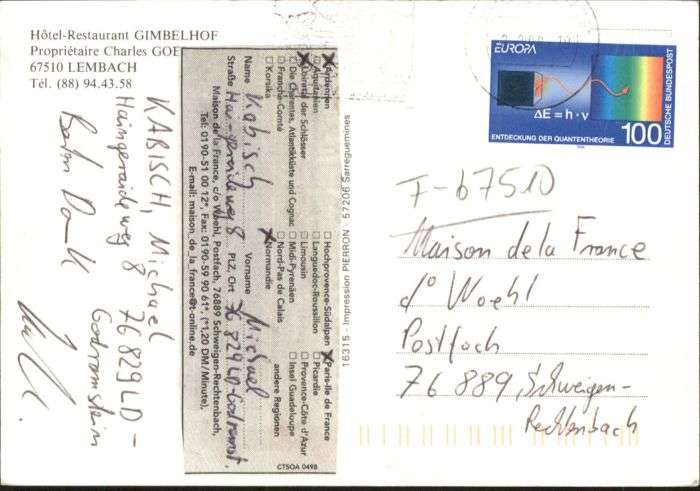 Hôtel-Restaurant GIMBELHOF
Propriétaire Charles GOE
67510 LEMBACH
Tél. (88) 94.43.58
KABISCH, Michael
Haingeraideweg 8
76829 LD -
Godramstein
Besten Dank
Ardennen
Aquitanien
Loiretal der Schlösser
Die Charentes, Atlantikküste und Cognac
Franche-Comté
Korsika
Hochprovence-Südalpen
Languedoc-Roussillon
Limousin
Midi-Pyrenäen
Nord-Pas de Calais
Normandie
Paris-Ile de France
Picardie
Provence-Côte d'Azur
Insel Guadeloupe
andere Regionen
Name Kabisch Vorname Michael
Straße Haingeraideweg 8 PLZ, Ort 76829 LD-Godramst.
Maison de la France, c/o Woehl, Postfach, 76889 Schweigen-Rechtenbach,
Tel: 0190-51 00 12*, Fax: 0190-59 90 61*, (*1,20 DM/Minute),
E-mail: maison_de_la_france@t-online.de
CTSOA 0498
16315 - Impression PIERRON - 57206 Sarreguemines
EUROPA
ΔE = h · ν
ENTDECKUNG DER QUANTENTHEORIE
100
DEUTSCHE BUNDESPOST
F-67510
Maison de la France
c/o Woehl
Postfach
76889 Schweigen-
Rechtenbach